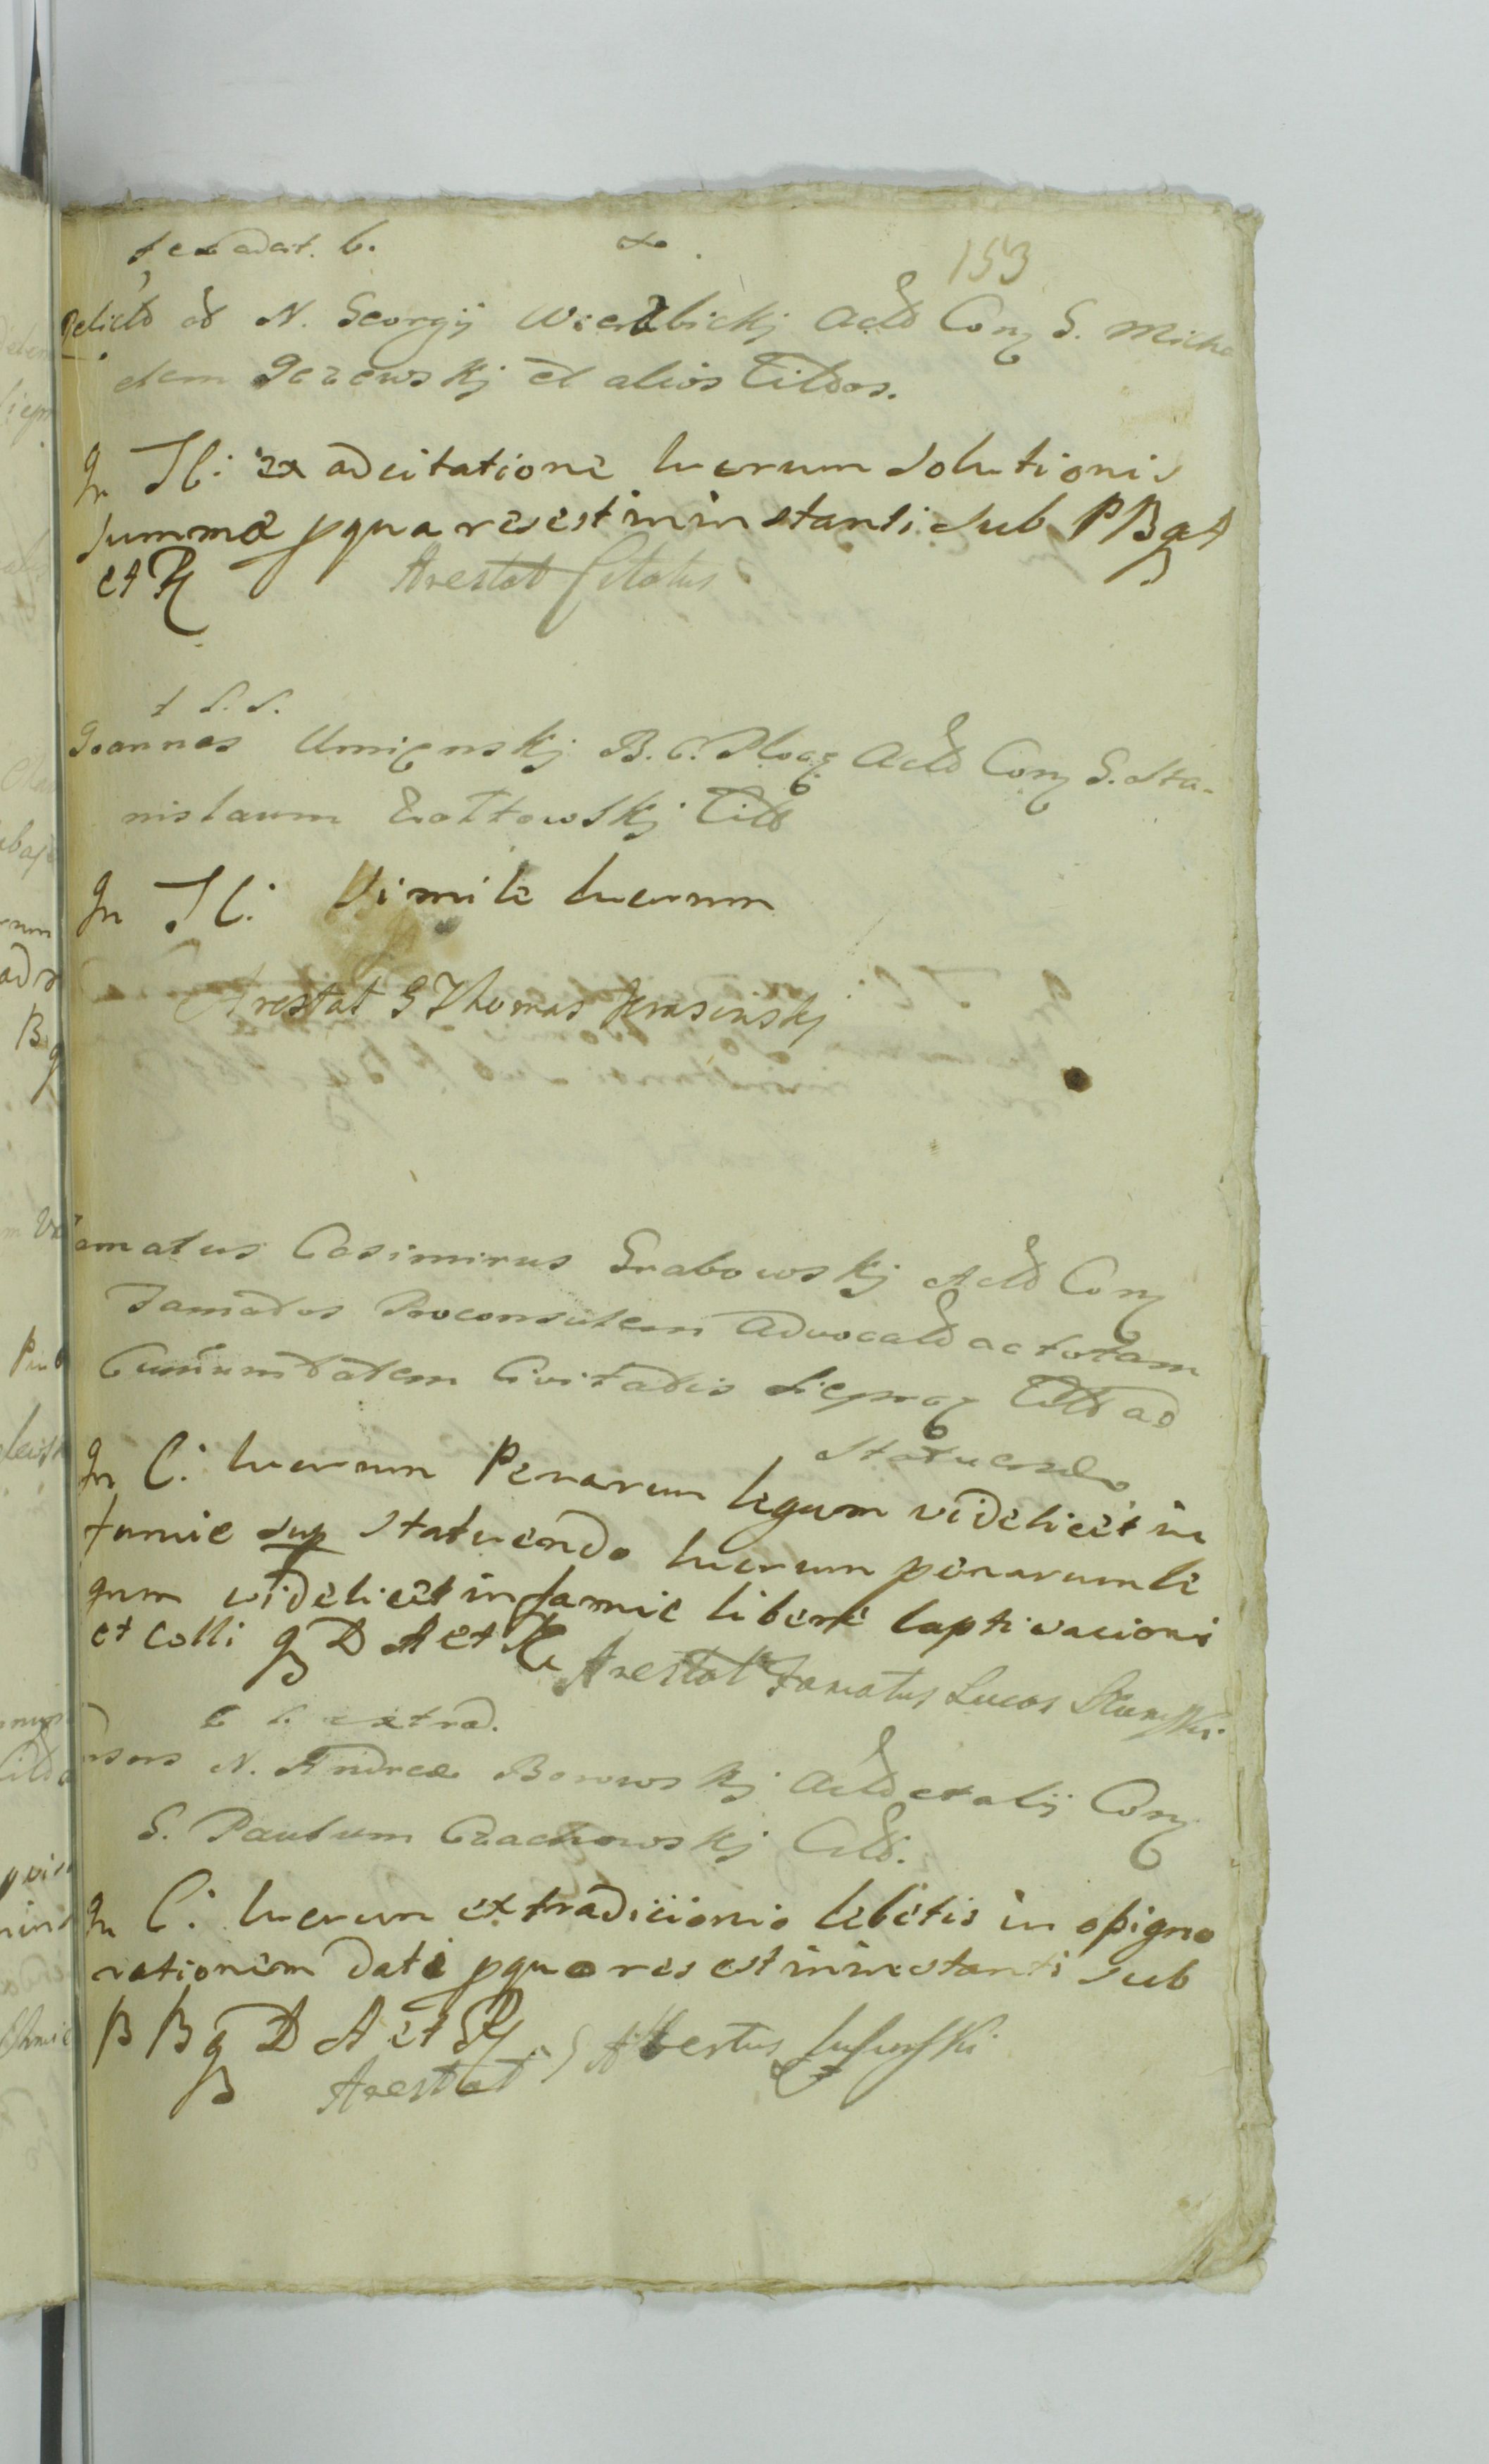 t ex adcit. 6.
153
Relicta olim N. Georgij Wierzbickj Actd Con G. Micha
elem Jezewskj et alios Citdos.
In TC. ex adcitatione lucrum solutionis
summæ pqua res est in instanti sub PBgA
et R
Arestat Citatus
t S. S.
Joannes Umięnskj B. C. Ploc Actd Con G. Sta-
nislaum Zołtowskj Citd
In TC. Simile lucrum
Arestat G Thomas Krasinskj
Famatus Casimirus Grabowskj Actd Con
Famatos Proconsulem Advocatd ac totam
Cummunitatem Civitatis Siepra Citd ad
statuendo
In C. lucrum Penarum legum videlicet in
famie sup statuendo lucrum penarum le
gum videlicet infamie libere captivacioni
et colli g D A et R
Arestat Famatus Lucas
C C. extrad.
N. Andreæ Borowskj Actd et alij Con
G. Paulum Czachowskj Citd.
In C. lucrum extradicionis lebetis in opigno
rationem dati pqua res est in instanti sub
P B g D A et R
Arestat G Albertus